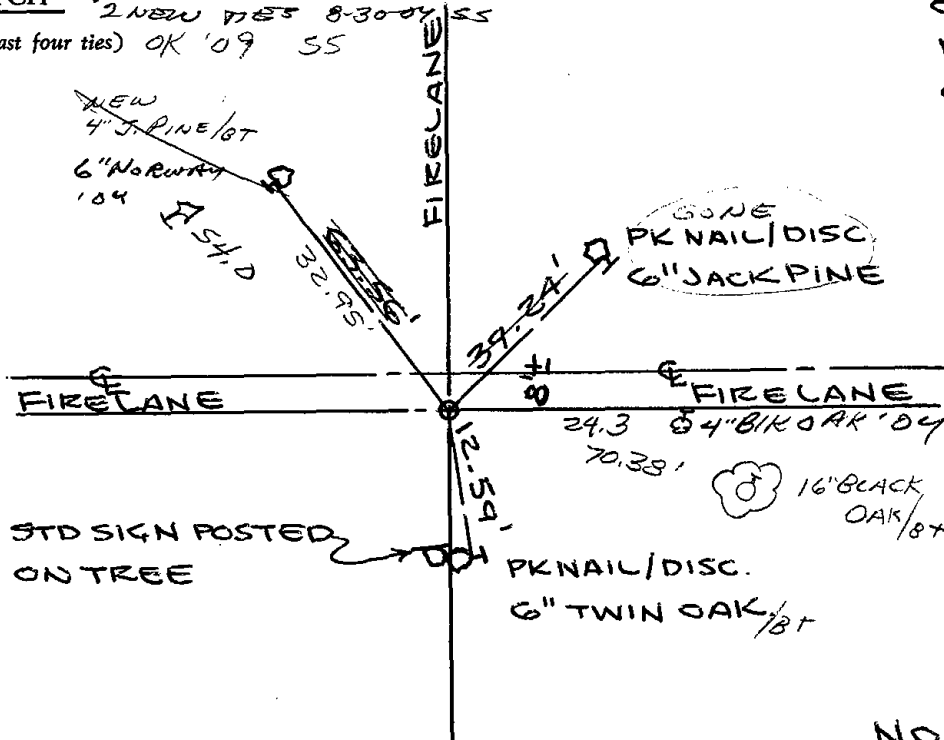 2 NEW TIES 8-30-04 SS
ast four ties) OK '09 SS
FIRELANE
NEW
4" J. PINE/BT
6" NORWAY
'04
54.0
63.56'
32.95'
GONE
PK NAIL/DISC
6" JACK PINE
39.24'
8'±
℄
℄
FIRELANE
FIRELANE
24.3 4" BlK OAK '04
70.38'
16" BLACK
OAK/BT
12.59'
STD SIGN POSTED
ON TREE
PK NAIL/DISC.
6" TWIN OAK/BT
NO